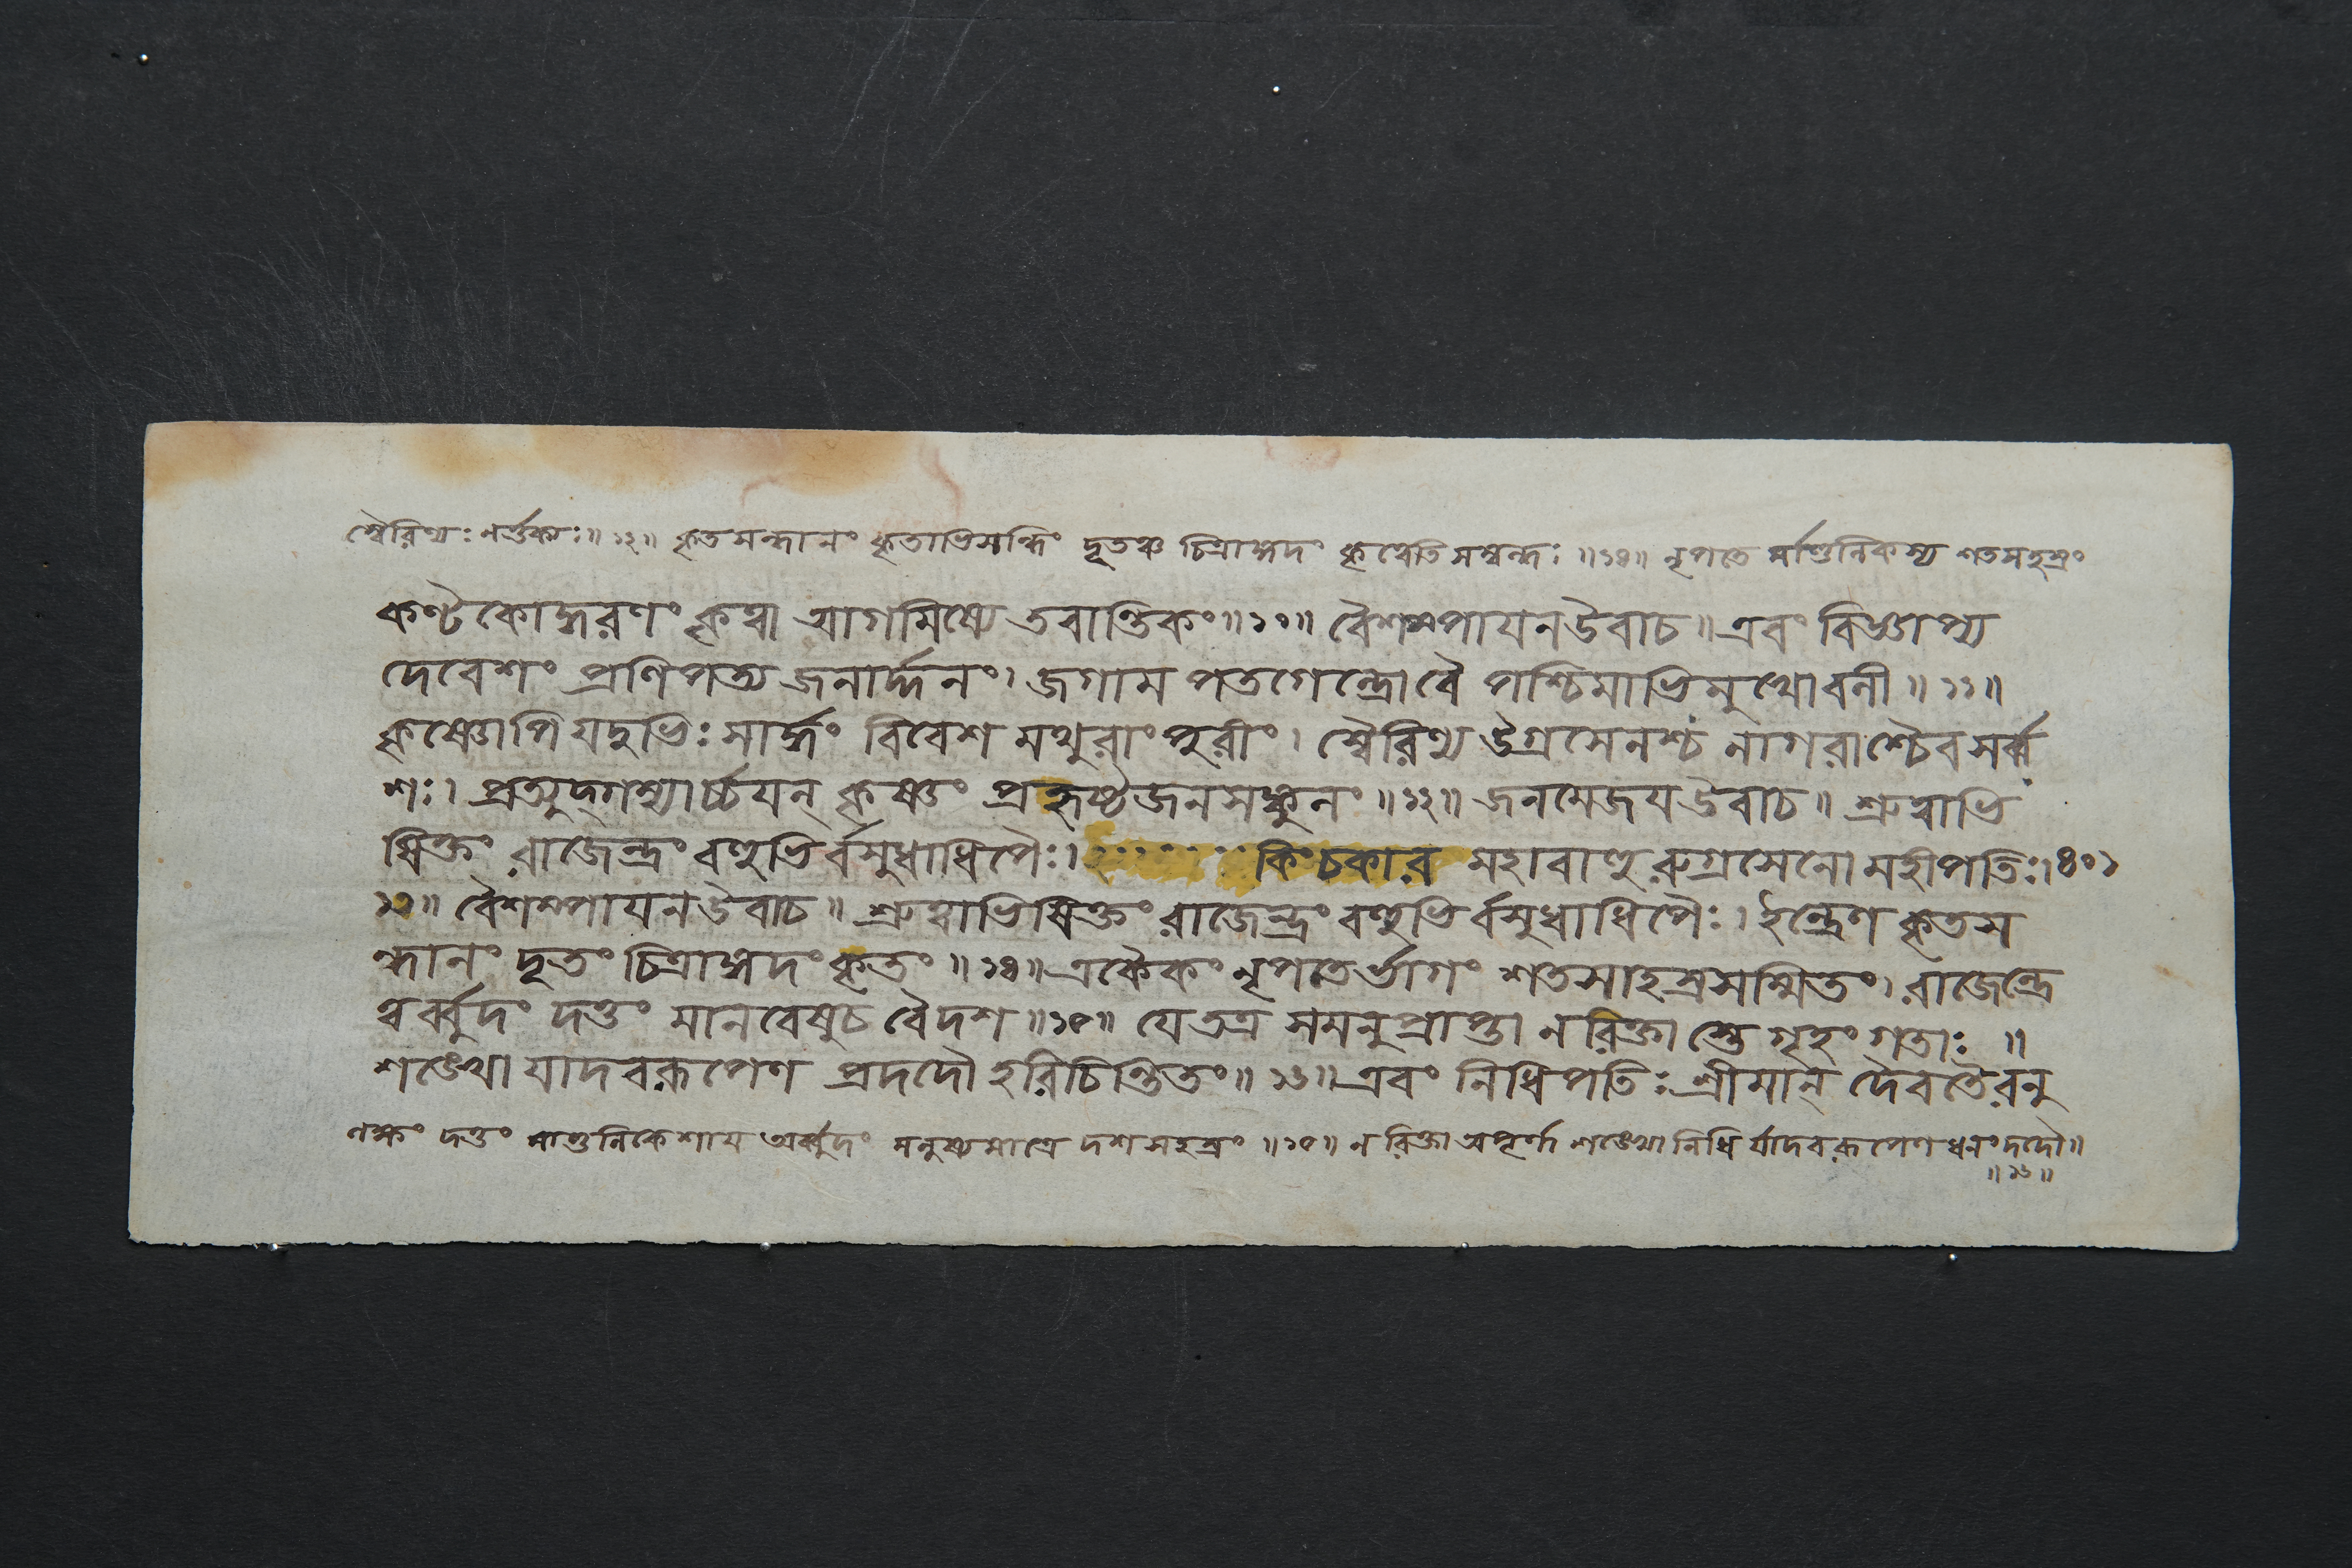 স্বৈরিণ্যঃ নর্ত্তক্যঃ॥ ১২॥ কৃতসন্ধানং কৃতাভিসন্ধিং দূতঞ্চ চিত্রাঙ্গদং কৃত্বেতি সম্বন্ধঃ ॥১৪॥ নৃপতে র্মাণ্ডলিকস্য শতসহস্রং
কণ্টকোদ্ধরণং কৃত্বা আগমিষ্যে তবান্তিকং॥১০॥ বৈশম্পায়ন উবাচ॥ এবং বিজ্ঞাপ্য
দেবেশং প্রণিপত্য জনার্দ্দনং। জগাম পতগেন্দ্রো বৈ পশ্চিমাভিমুখো বলী॥ ১১॥
কৃষ্ণোপি যদুভিঃ সার্দ্ধং বিবেশ মথুরাং পুরীং। স্বৈরিণ্য উগ্রসেনশ্চ নাগরাশ্চৈব সর্ব্ব
শঃ। প্রত্যুদ্গম্যার্চ্চয়ন্ কৃষ্ণং প্রহৃষ্টজনসঙ্কুলং ॥১২॥ জনমেজয় উবাচ॥ শ্রুত্বাভি
ষিক্তং রাজেন্দ্রং বহুভির্বসুধাধিপৈঃ। কিং চকার মহাবাহু রুগ্রসেনো মহীপতিঃ। ৪০১
১৩॥ বৈশম্পায়ন উবাচ॥ শ্রুত্বাভিষিক্তং রাজেন্দ্রং বহুভির্বসুধাধিপৈঃ। ইন্দ্রেণ কৃতস
ন্ধানং দূতং চিত্রাঙ্গদং কৃতং ॥১৪॥ একৈকং নৃপতের্ভাগং শতসাহস্রসম্মিতং। রাজেন্দ্রে
ত্বর্ব্বুদং দত্তং মানবেষু চ বৈ দশ॥১৫॥ যে তত্র সমনুপ্রাপ্তা ন রিক্তাস্তে গৃহং গতাঃ ॥
শঙ্খো যাদবরূপেণ প্রদদৌ হরিচিন্তিতং॥ ১৬॥ এবং নিধিপতিঃ শ্রীমান্ দৈবতৈরনু
লক্ষং দত্তং মাণ্ডলিকেশায় অর্ব্বুদং মনুষ্যমাত্রে দশসহস্রং ॥১৫॥ ন রিক্তা অপূর্ণা শঙ্খো নিধি র্যাদবরূপেণ ধনং দদৌ॥
॥১৬॥